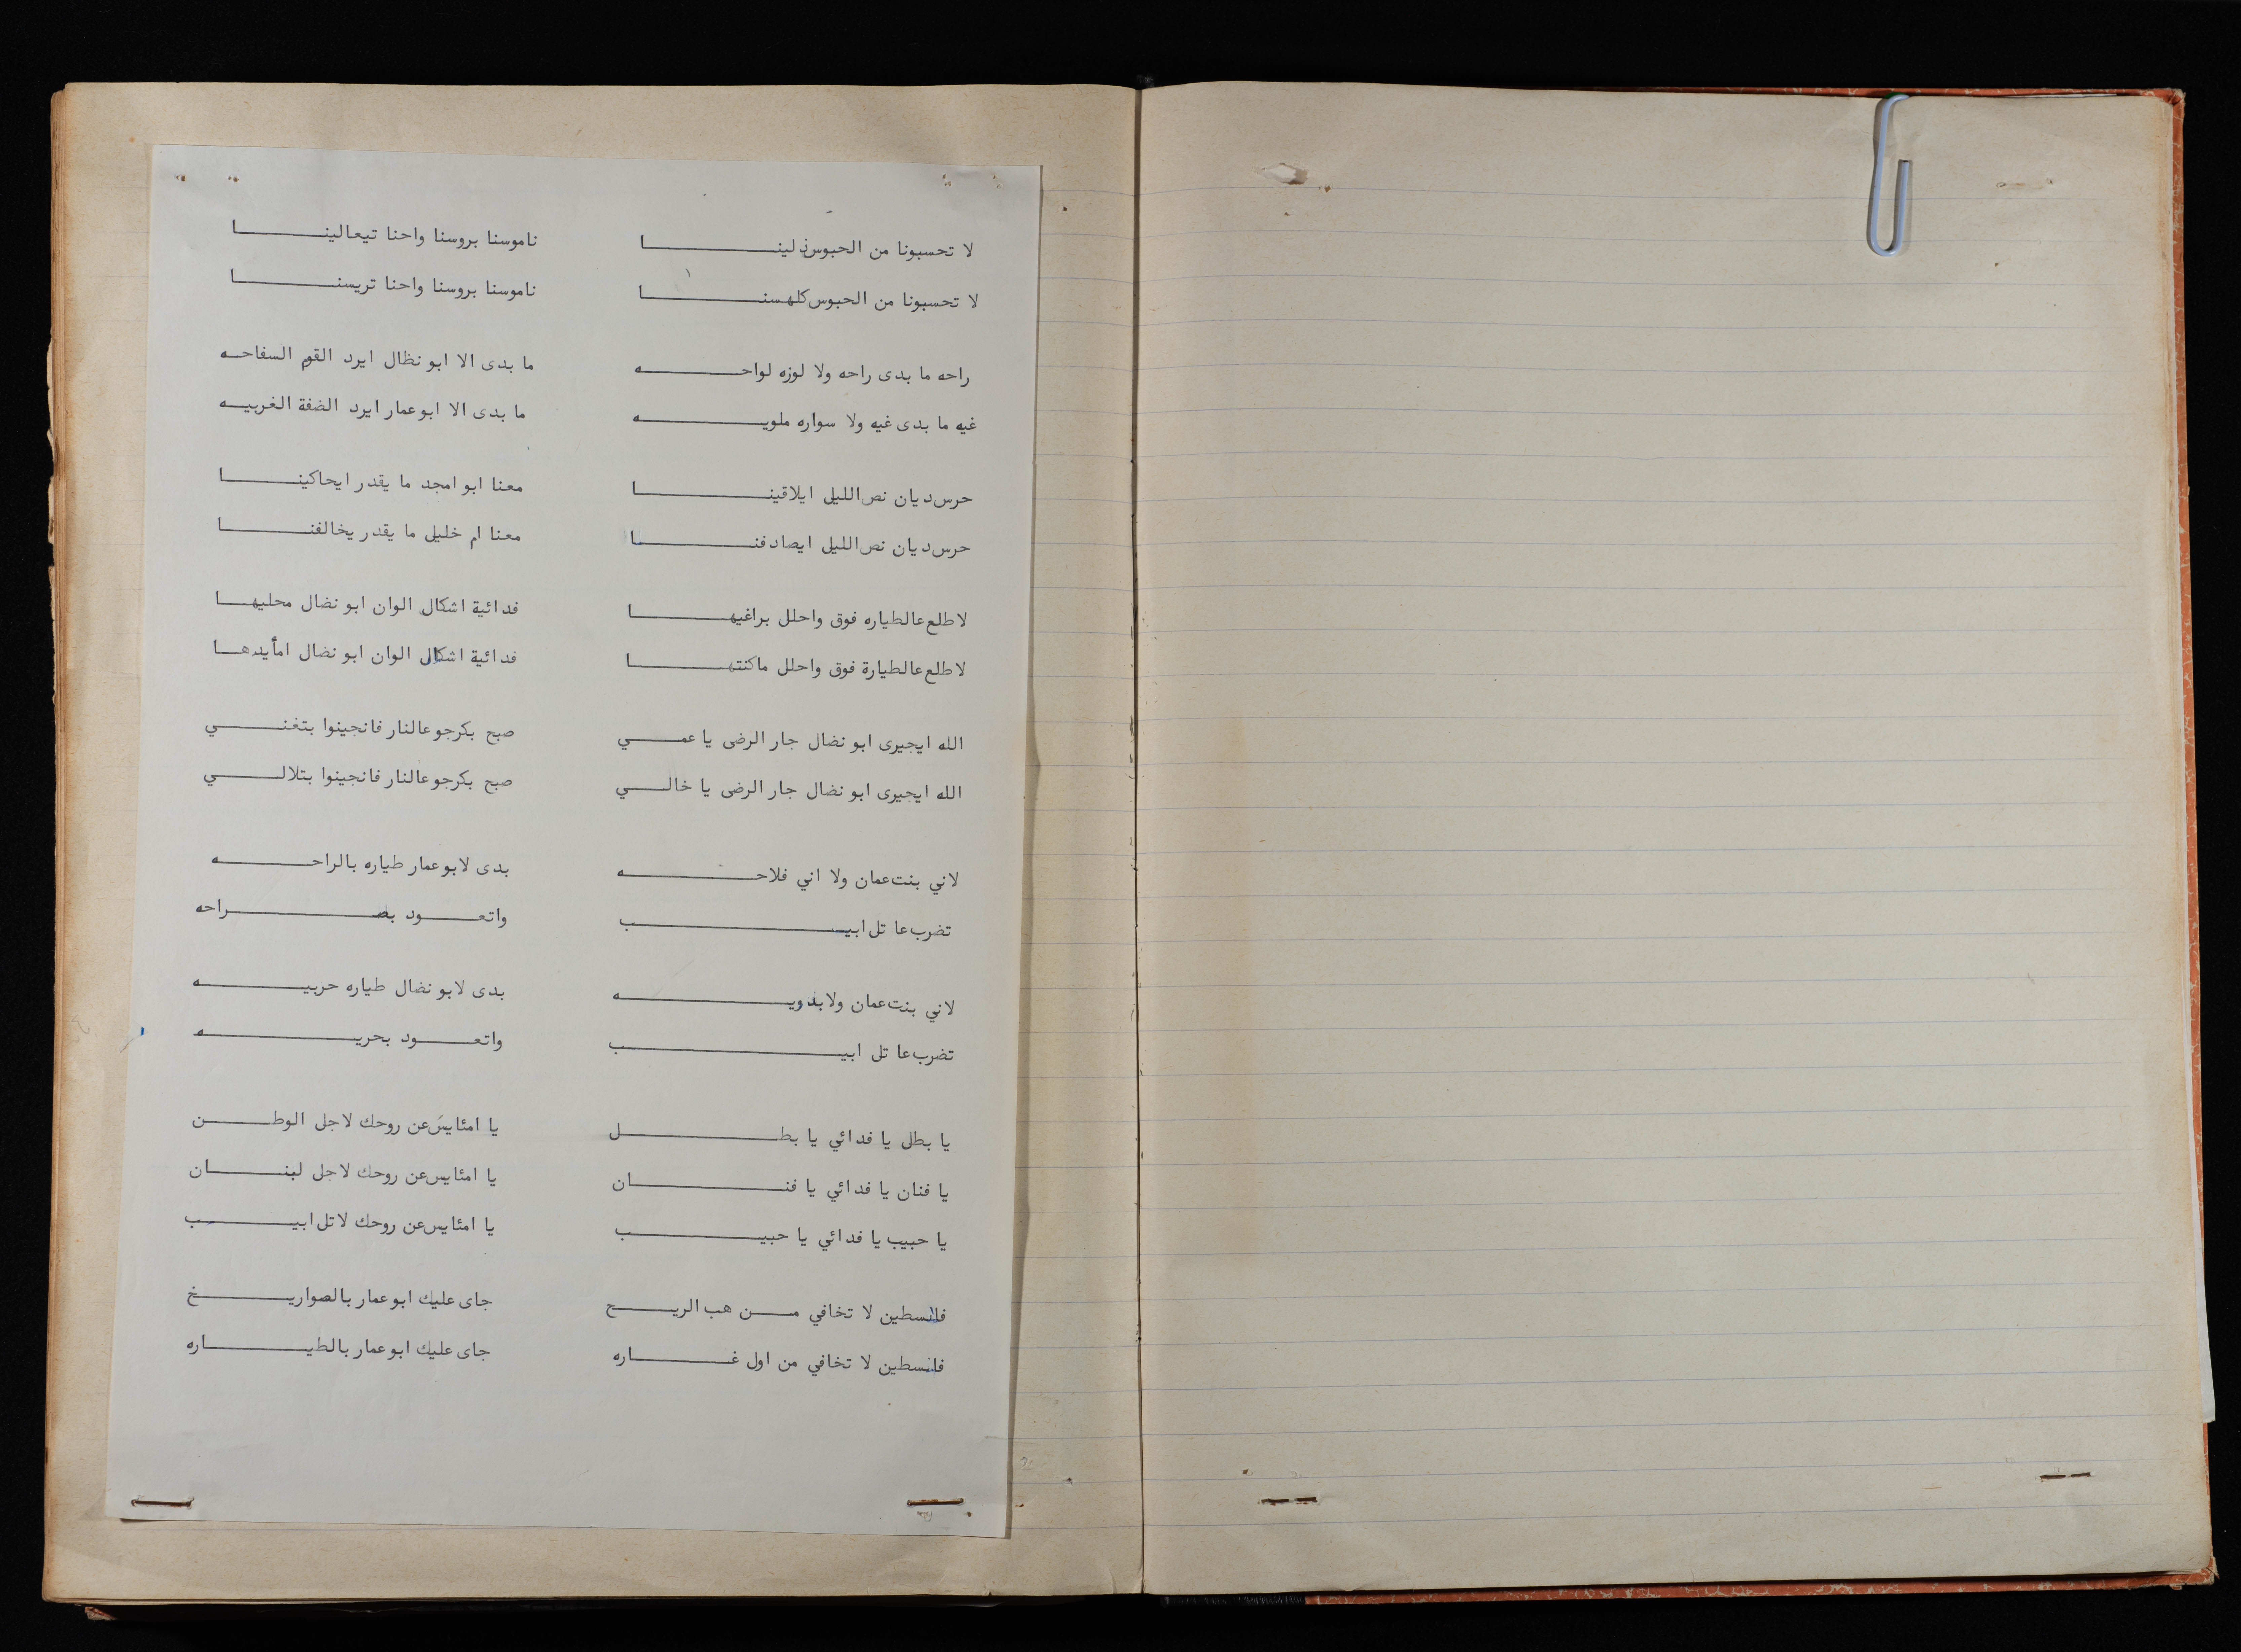 لا تحسبونا من الحبوس ذلينا ناموسنا بروسنا واحنا تيعالينا
لا تحسبونا من الحبوس كلهسنا ناموسنا بروسنا واحنا تريسنا
راحه ما بدى راحه ولا لوزه لواحه ما بدى الا ابو نظال ايرد القوم السفاحه
غيه ما بدى غيه ولا سواره ملويه ما بدى الا ابو عمار ايرد الضفة الغربيه
حرس ديان نص الليل ايلاقينا معنا ابو امجد ما يقدر ايحاكينا
حرس ديان نص الليل ايصادفنا معنا ام خليل ما يقدر يخالفنا
لاطلع عالطياره فوق واحلل براغيها فدائية اشكال الوان ابو نضال محليها
لاطلع عالطيارة فوق واحلل ماكنتها فدائية اشكال الوان ابو نضال امأيدها
الله ايجيرى ابو نضال جار الرضى يا عمي صبح بكرجو عالنار فانجينوا بتغني
الله ايجيرى ابو نضال جار الرضى يا خالي صبح بكرجو عالنار فانجينوا بتلالي
لاني بنت عمان ولا اني فلاحه بدى لابو عمار طياره بالراحه
تضرب عا تل ابيب واتعود بصراحه
لاني بنت عمان ولا بدويه بدى لابو نضال طياره حربيه
تضرب عا تل ابيب واتعود بحريه
يا بطل يا فدائي يا بطل يا امئايس عن روحك لاجل الوطن
يا فنان يا فدائي يا فنان يا امئايس عن روحك لاجل لبنان
يا حبيب يا فدائي يا حبيب يا امئايس عن روحك لا تل ابيب
فلسطين لا تخافي من هب الريح جاى عليك ابو عمار بالصواريخ
فلسطين لا تخافي من اول غاره جاى عليك ابو عمار بالطياره